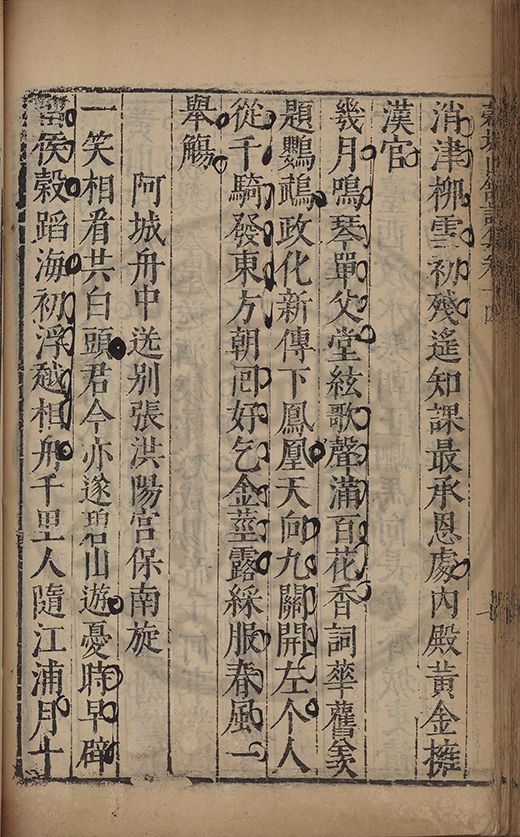 消津柳雪初殘遙知課最承恩處內殿黃金擁
漢官
幾月鳴琴單父堂絃歌聲滿百花香詞華舊羨
題鸚鵡政化新傳下鳳凰天向九關開左个人
從千騎發東方朝囘好乞金莖露綵服春風一
舉觴
阿城舟中送别張洪陽宮保南旋
一笑相看共白頭君今亦遂碧山遊憂時早辟
留侯穀蹈海初浮越相舟千里人隨江浦月十